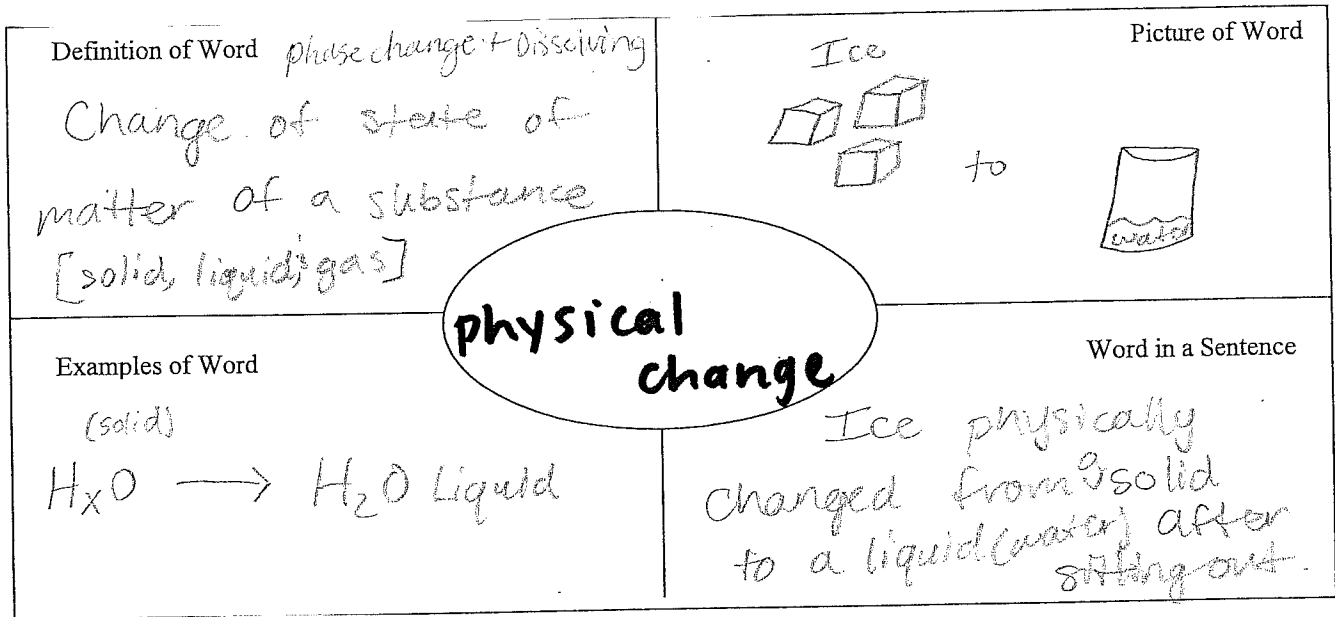 Definition of Word phase change + Dissolving
Change of state of
matter of a substance
[solid, liquid, & gas]
Picture of Word
Ice
to
water
physical
change
Examples of Word
(solid)
HxO → H₂O Liquid
Word in a Sentence
Ice physically
changed from a solid
to a liquid (water) after
sitting out.